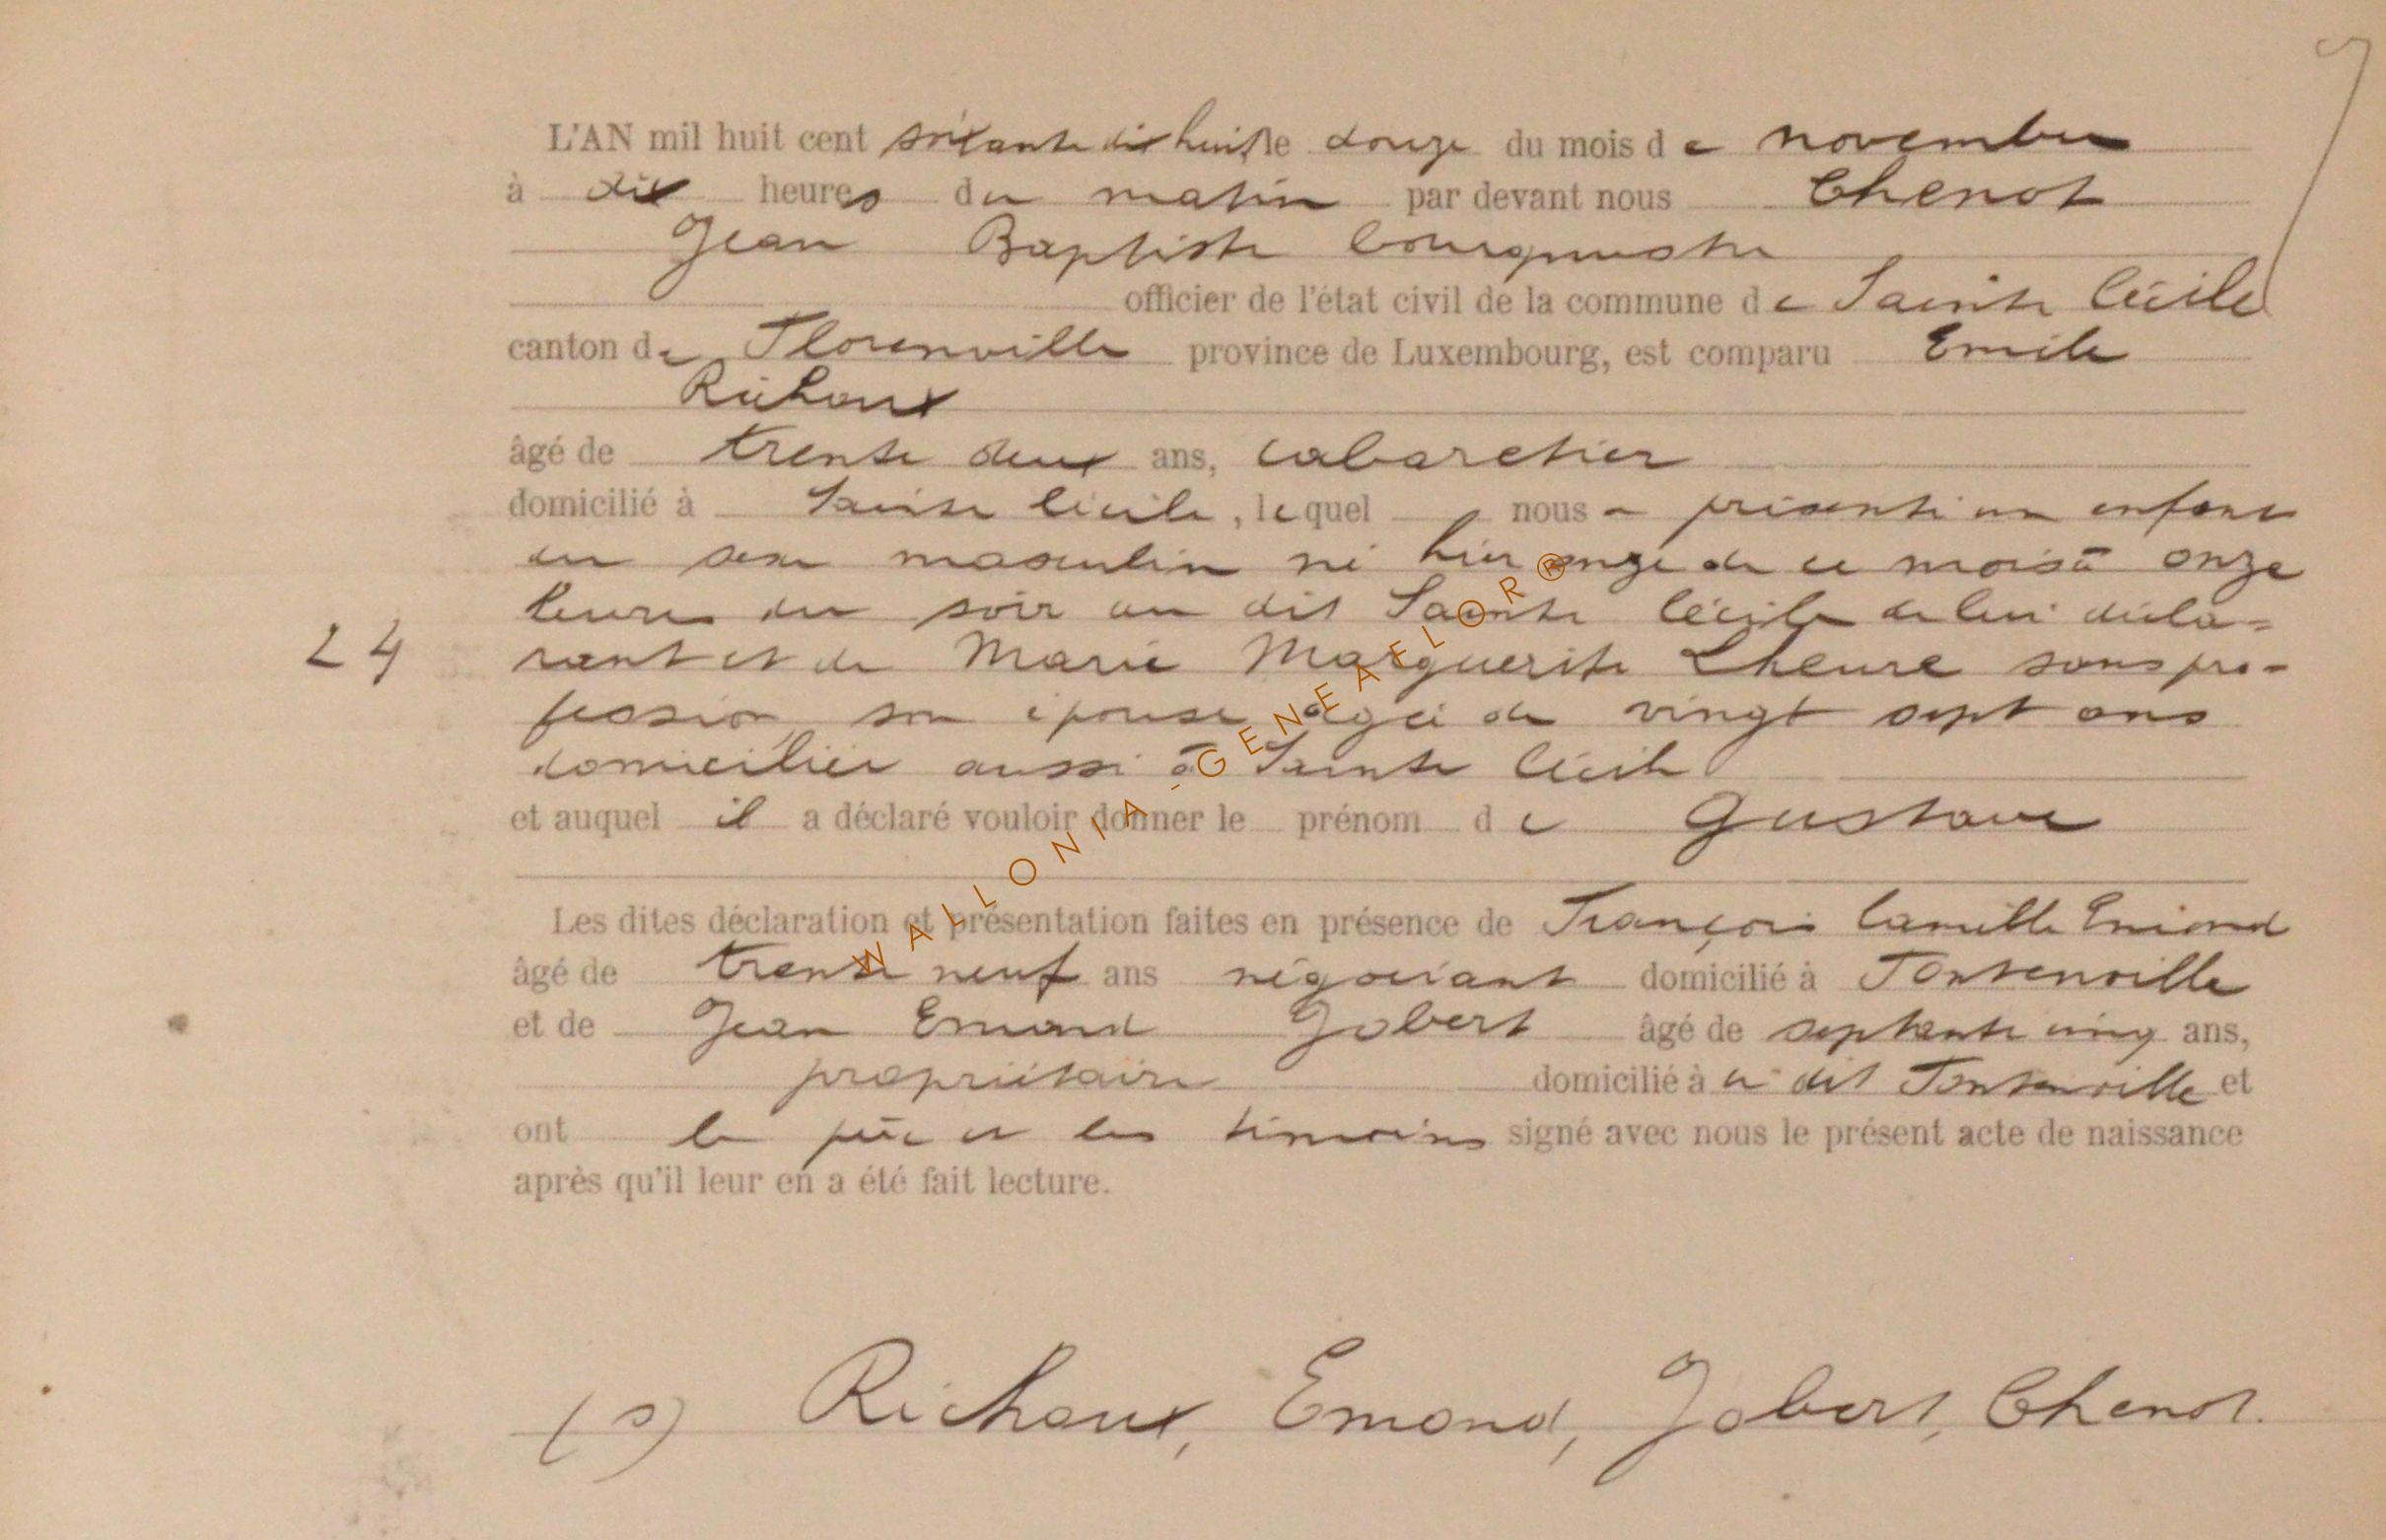 L'AN mil huit cent soixante dix huit le douze du mois de novembre
à dix heures du matin par devant nous Chenot
Jean Baptiste bourgmestre
officier de l'état civil de la commune de Sainte Cécile
canton de Florenville province de Luxembourg, est comparu Emile
Richoux
âgé de trente deux ans, cabaretier
domicilié à Sainte Cécile, lequel nous a présenté un enfant
du sexe masculin né hier onze de ce mois à onze
heures du soir au dit Sainte Cécile de lui décla=
rant et de Marie Marguerite Lheure sans pro-
fession son épouse agée de vingt sept ans
domiciliée aussi à Sainte Cécile
24
et auquel il a déclaré vouloir donner le prénom de Gustave
Les dites déclaration et présentation faites en présence de François Camille Emond
âgé de trente neuf ans négociant domicilié à Fontenoille
et de Jean Emond Jobert âgé de septante cinq ans,
propriétaire domicilié à dit Fontenoille et
ont le père et les témoins signé avec nous le présent acte de naissance
après qu'il leur en a été fait lecture.
(s) Richoux, Emond, Jobert, Chenot.
WALLONIA - GENEAFLOR ®